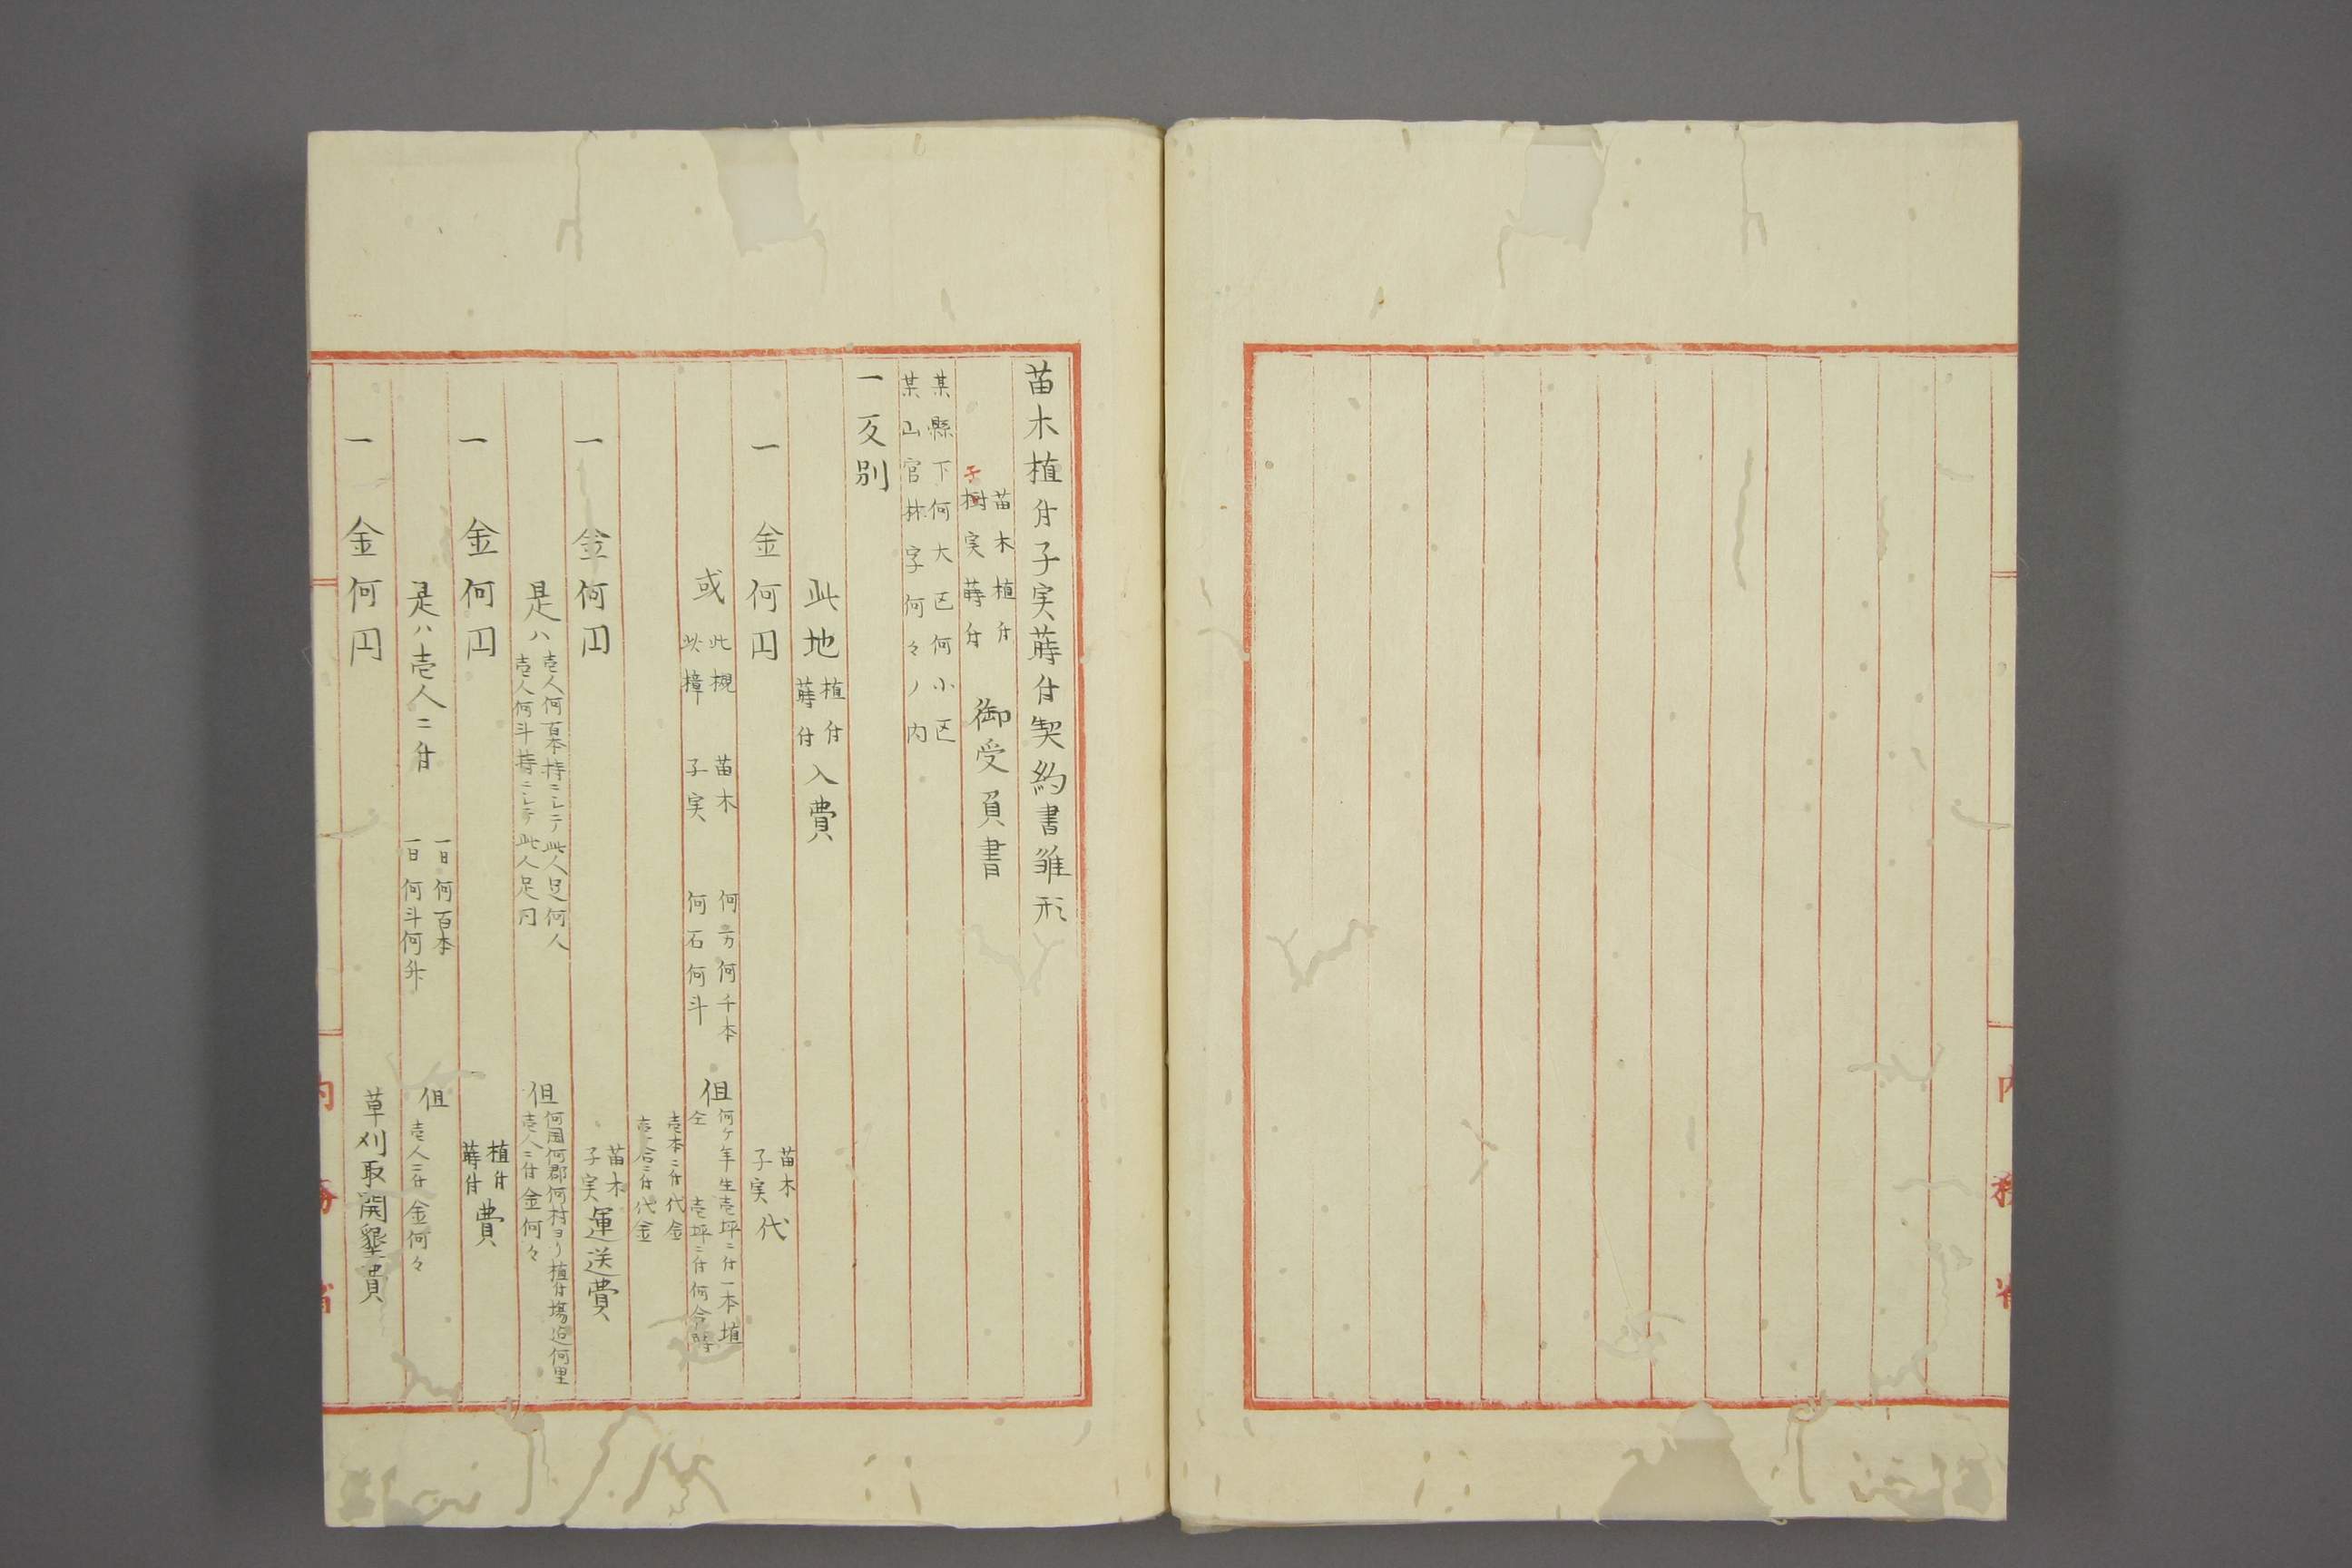 内務省
苗木植付子実蒔付契約書雛形
苗木植付
子
樹実蒔付
御受負書
某縣下何大区何小区
某山官林字何々ノ内
一反別
此地
植付
蒔付
入費
一金何円
苗木
子実
代
或
此槻
此樟
苗木
子実
何万何千本
何石何斗
但
何ヶ年生壱坪ニ付一本植
仝 壱坪ニ付何合蒔
壱本ニ付代金
壱合ニ付代金
一金何円
苗木
子実
運送費
是ハ
壱人何百本持ニシテ此人足何人
壱人何斗持ニシテ此人足同
但
何国何郡何村ヨリ植付場迠何里
壱人ニ付金何々
一金何円
植付
蒔付
費
是ハ壱人ニ付
一日何百本
一日何斗何舛
但
壱人ニ付金何々
一金何円
草刈取開墾費
内務省